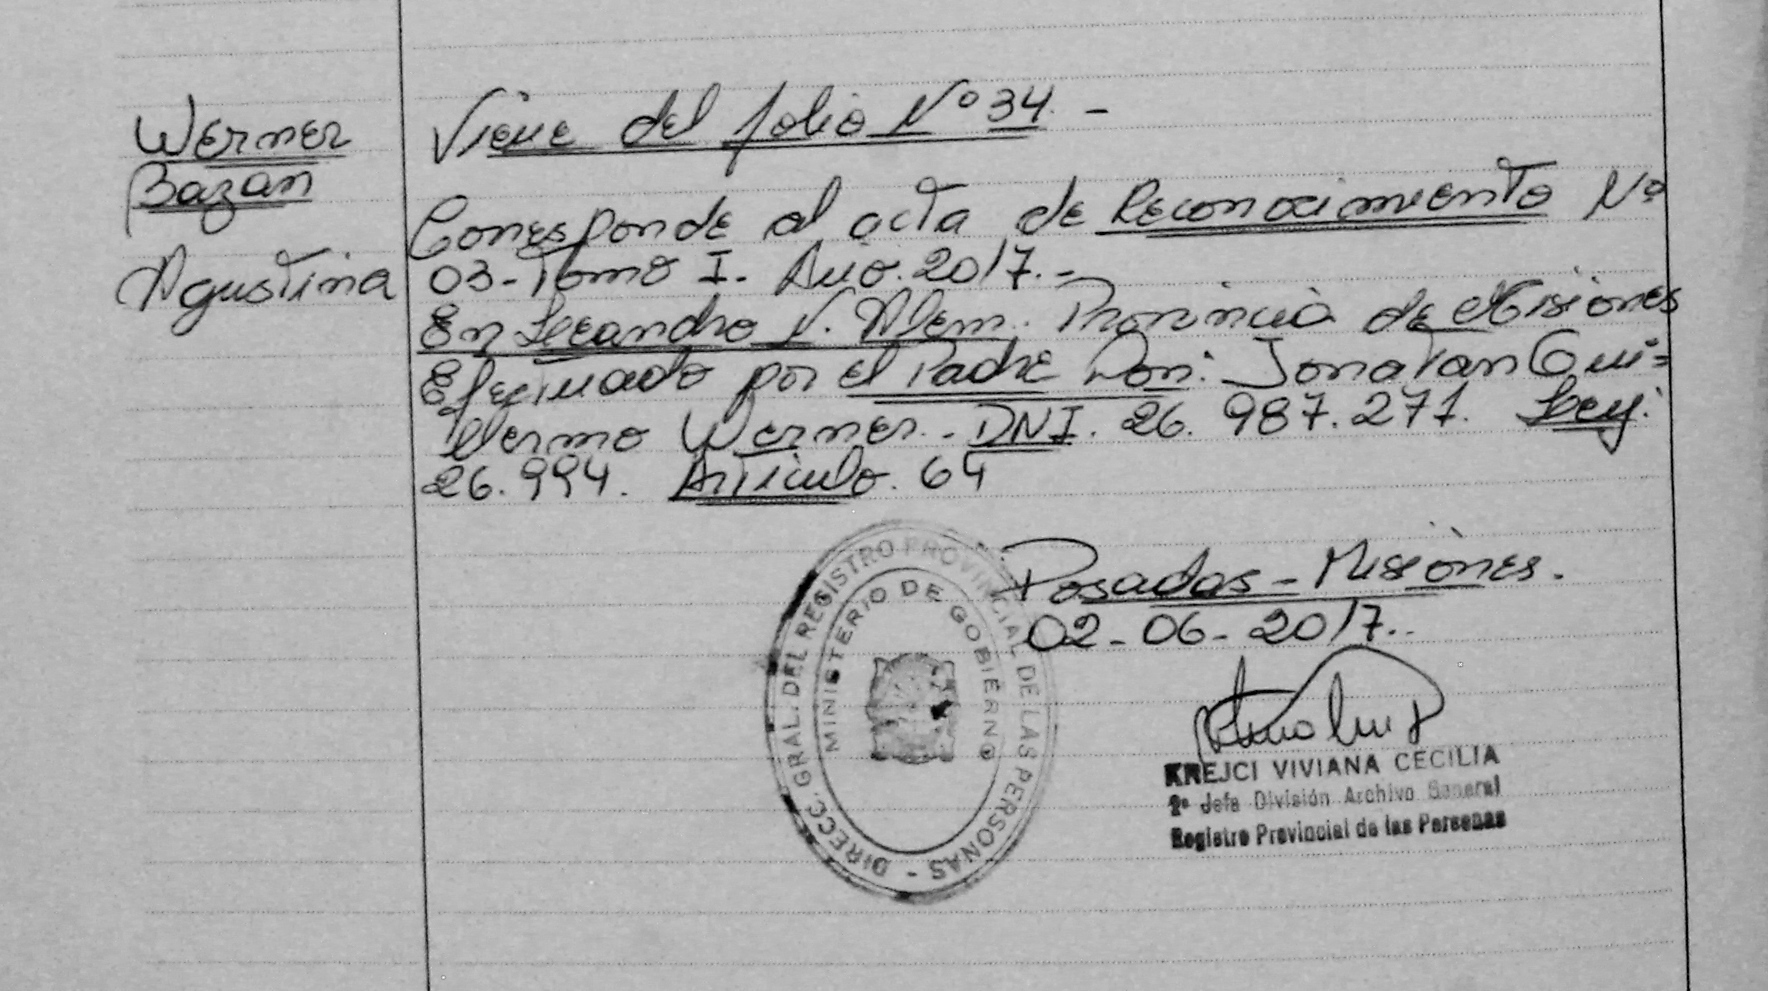 Werner
Bazan
Agustina
Viene del folio Nº 34. -
Corresponde al acta de Reconocimiento Nº
03- Tomo I. Año. 2017.-
En Leandro N. Alem. Provincia de Misiones
Efectuado por el Padre Don: Jonatan Gui=
llermo Werner. - DNI. 26.987.277. Ley:
26.994. Artículo. 64
Posadas - Misiones.
02-06-2017..
DIRECC. GRAL. DEL REGISTRO PROVINCIAL DE LAS PERSONAS -
MINISTERIO DE GOBIERNO
KREJCI VIVIANA CECILIA
2º Jefa División Archivo General
Registro Provincial de las Personas